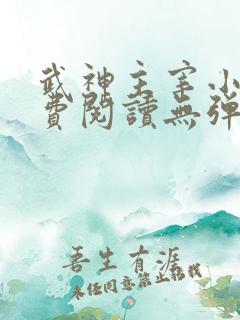 武神主宰小
費閱讀無彈
吾生有涯
未经同意禁止转载